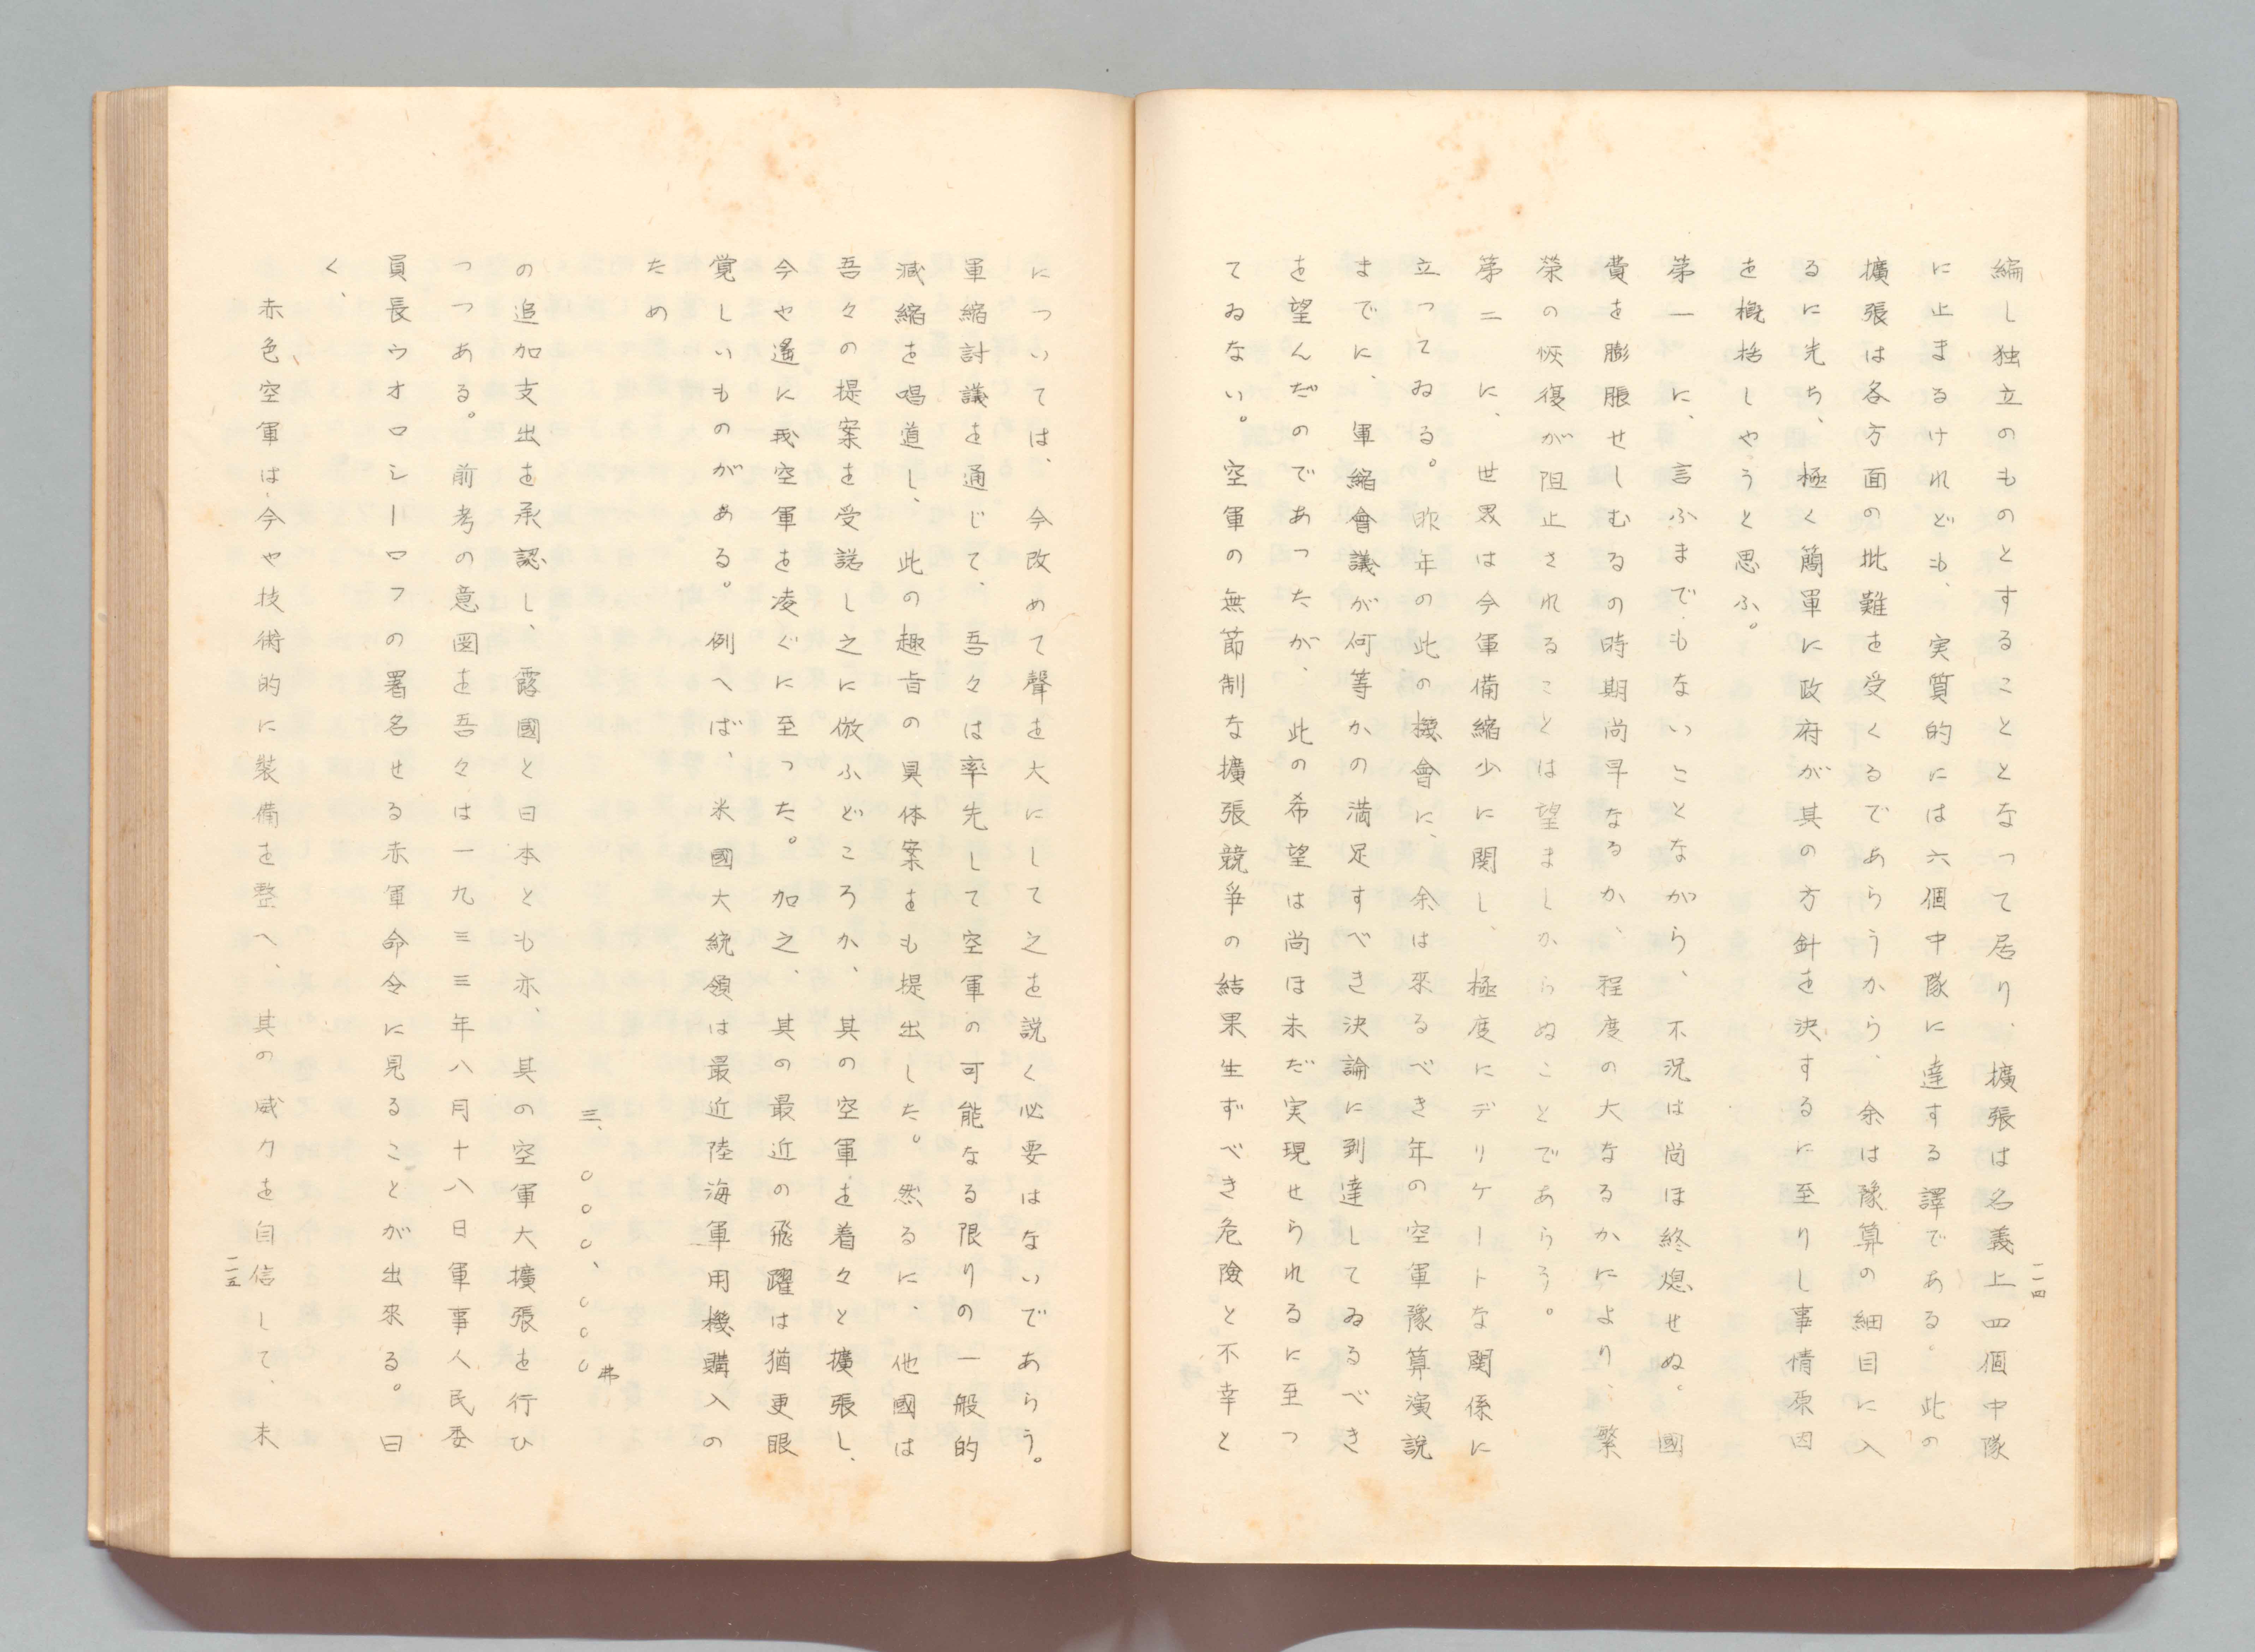 編し独立のものとすることとなつて居り、擴張は名義上四個中隊
に止まるけれども、実質的には六個中隊に達する譯である。此の
擴張は各方面の批難を受くるであらうから、余は豫算の細目に入
るに先ち、極く簡單に政府が其の方針を決するに至りし事情原因
を概括しやうと思ふ。
第一に、言ふまでもないことながら、不況は尚ほ終熄せぬ。國
費を膨脹せしむるの時期尚早なるか、程度の大なるかにより、繁
榮の恢復が阻止されることは望ましからぬことであらう。
第二に、世界は今軍備縮少に関し、極度にデリケートな関係に
立つてゐる。昨年の此の機會に、余は來るべき年の空軍豫算演説
までに、軍縮會議が何等かの満足すべき決論に到達してゐるべき
を望んだのであつたが、此の希望は尚ほ未だ実現せられるに至つ
てゐない。空軍の無節制な擴張競争の結果生ずべき危險と不幸と
一一四
については、今改めて聲を大にして之を説く必要はないであらう。
軍縮討議を通じて、吾々は率先して空軍の可能なる限りの一般的
減縮を唱道し、此の趣旨の具体案をも提出した。然るに、他國は
吾々の提案を受諾し之に倣ふどころか、其の空軍を着々と擴張し、
今や遙に我空軍を凌ぐに至つた。加之、其の最近の飛躍は猶更眼
覚しいものがある。例へば、米國大統領は最近陸海軍用機購入の
ため
三、〇〇〇、〇〇〇弗
の追加支出を承認し、露國と日本とも亦、其の空軍大擴張を行ひ
つつある。前考の意圖を吾々は一九三三年八月十八日軍事人民委
員長ウオロシーロフの署名せる赤軍命令に見ることが出來る。曰
く、
赤色空軍は今や技術的に裝備を整へ、其の威力を自信して、未
一一五